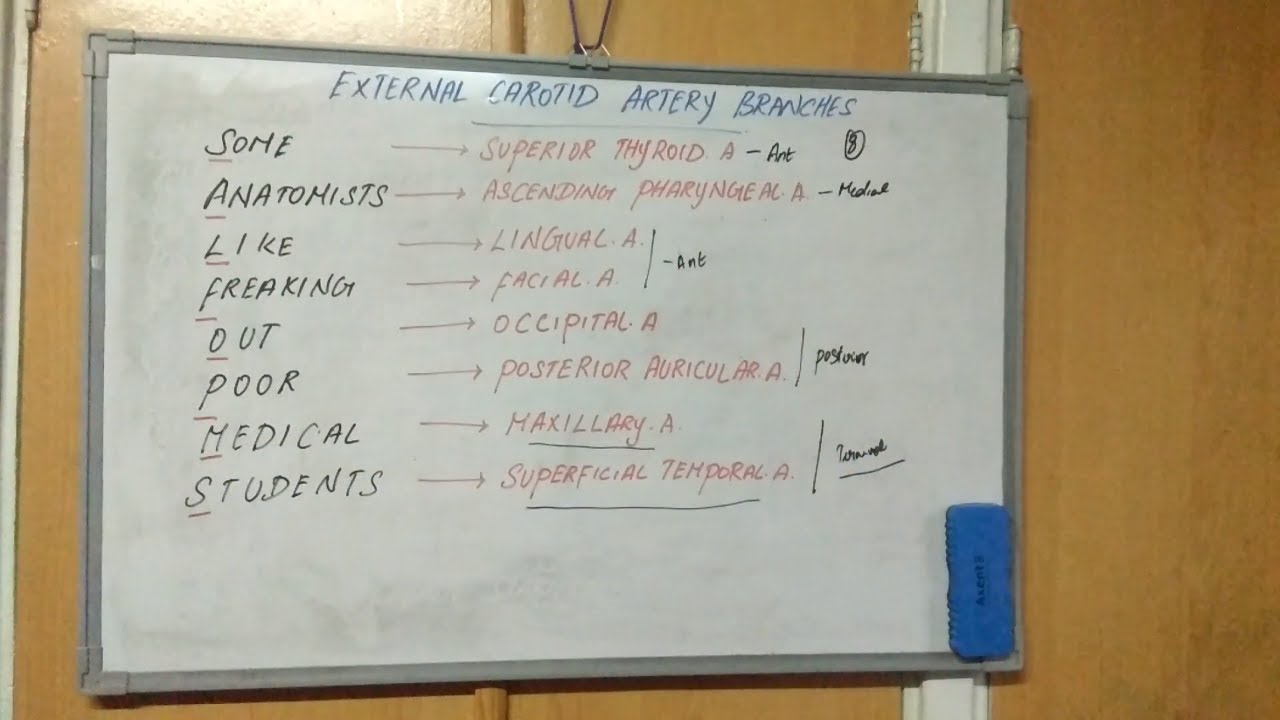 EXTERNAL CAROTID ARTERY BRANCHES
SOME → SUPERIOR THYROID. A - Ant 8
ANATOMISTS → ASCENDING PHARYNGEAL. A. - Medial
LIKE → LINGUAL. A.
- Ant
FREAKING → FACIAL. A.
OUT → OCCIPITAL. A
POOR → POSTERIOR AURICULAR. A. posterior
MEDICAL → MAXILLARY. A.
Terminal
STUDENTS → SUPERFICIAL TEMPORAL. A.
Axent